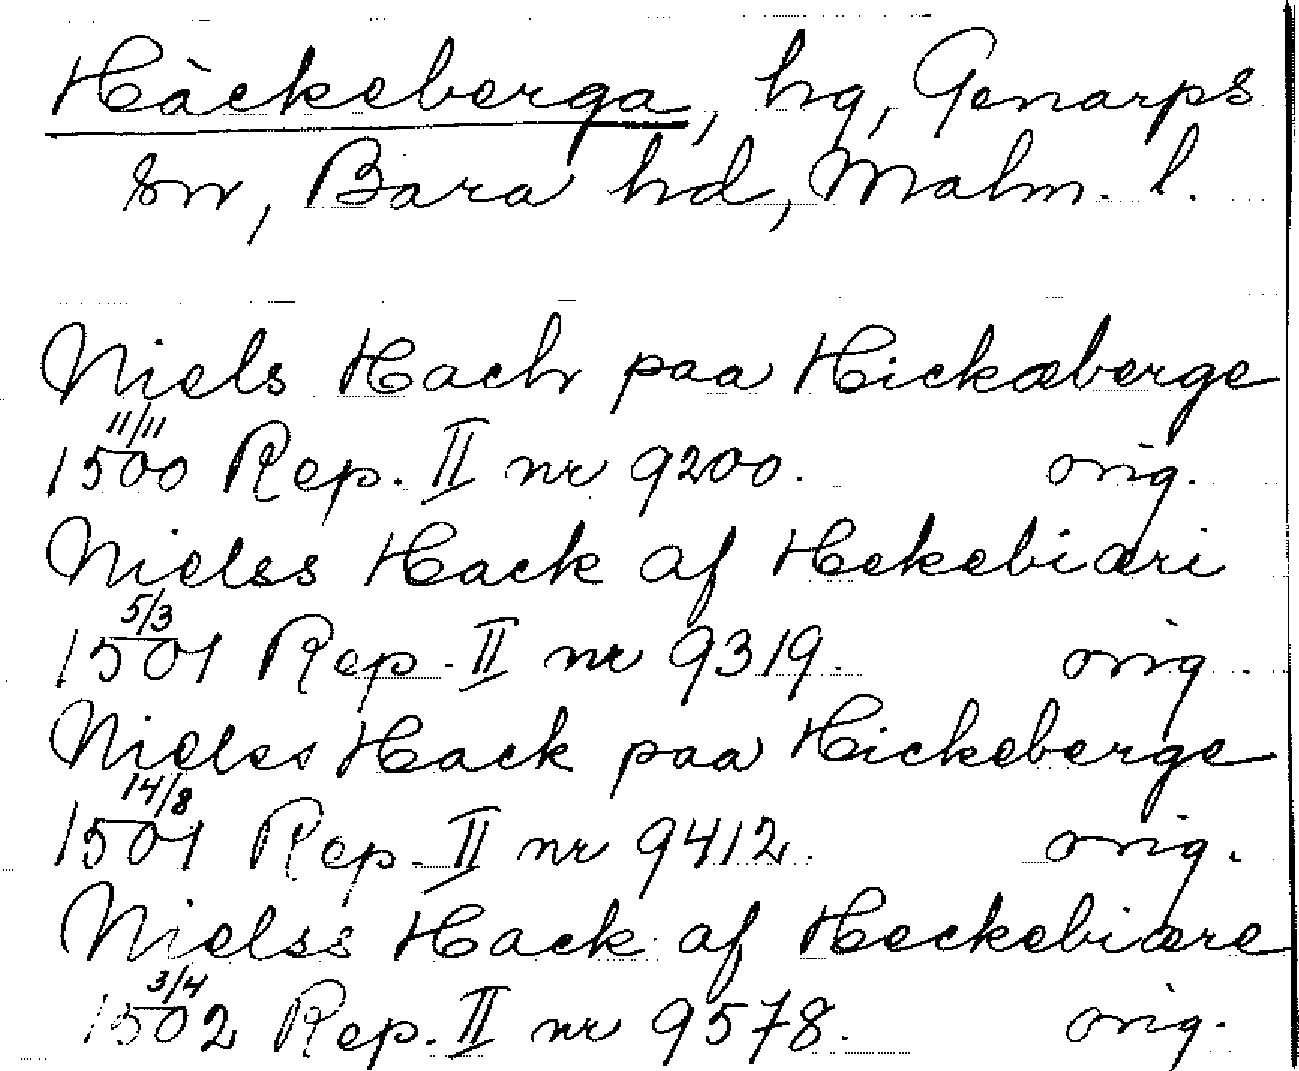 Häckeberga, hg, Genarps
sn, Bara hd, Malm. l.
Niels Hach paa Hickæberge
11/11
1500 Rep. II nr 9200. orig.
Nielss Hack af Hekebiæri
5/3
1501 Rep. II nr 9319. orig
Nielss Hack paa Hickeberge
14/8
1501 Rep. II nr 9412. orig.
Nielss Hack af Heckebiære
3/4
1502 Rep. II nr 9578. orig.